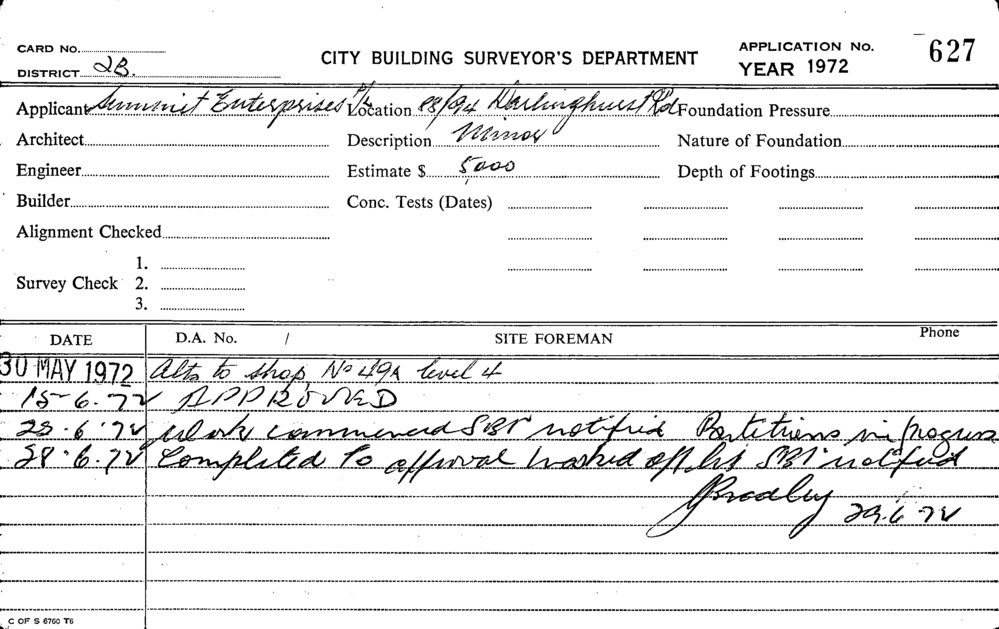 CARD No.
DISTRICT 2B.
CITY BUILDING SURVEYOR'S DEPARTMENT
APPLICATION No. 627
YEAR 1972
Applicant Summit Enterprises P/L Location 88/94 Darlinghurst Rd Foundation Pressure
Architect Description Minor Nature of Foundation
Engineer Estimate $ 5,000 Depth of Footings
Builder Conc. Tests (Dates)
Alignment Checked
1.
Survey Check 2.
3.
DATE D.A. No. / SITE FOREMAN Phone
30 MAY 1972 Alts to shop No 49A level 4
15-6.72 APPROVED
22.6.72 Work commenced SBI notified Partitions in progress
28.6.72 Completed to approval off list SBI notified
JBradley 29.6.72
C OF S 6760 T6